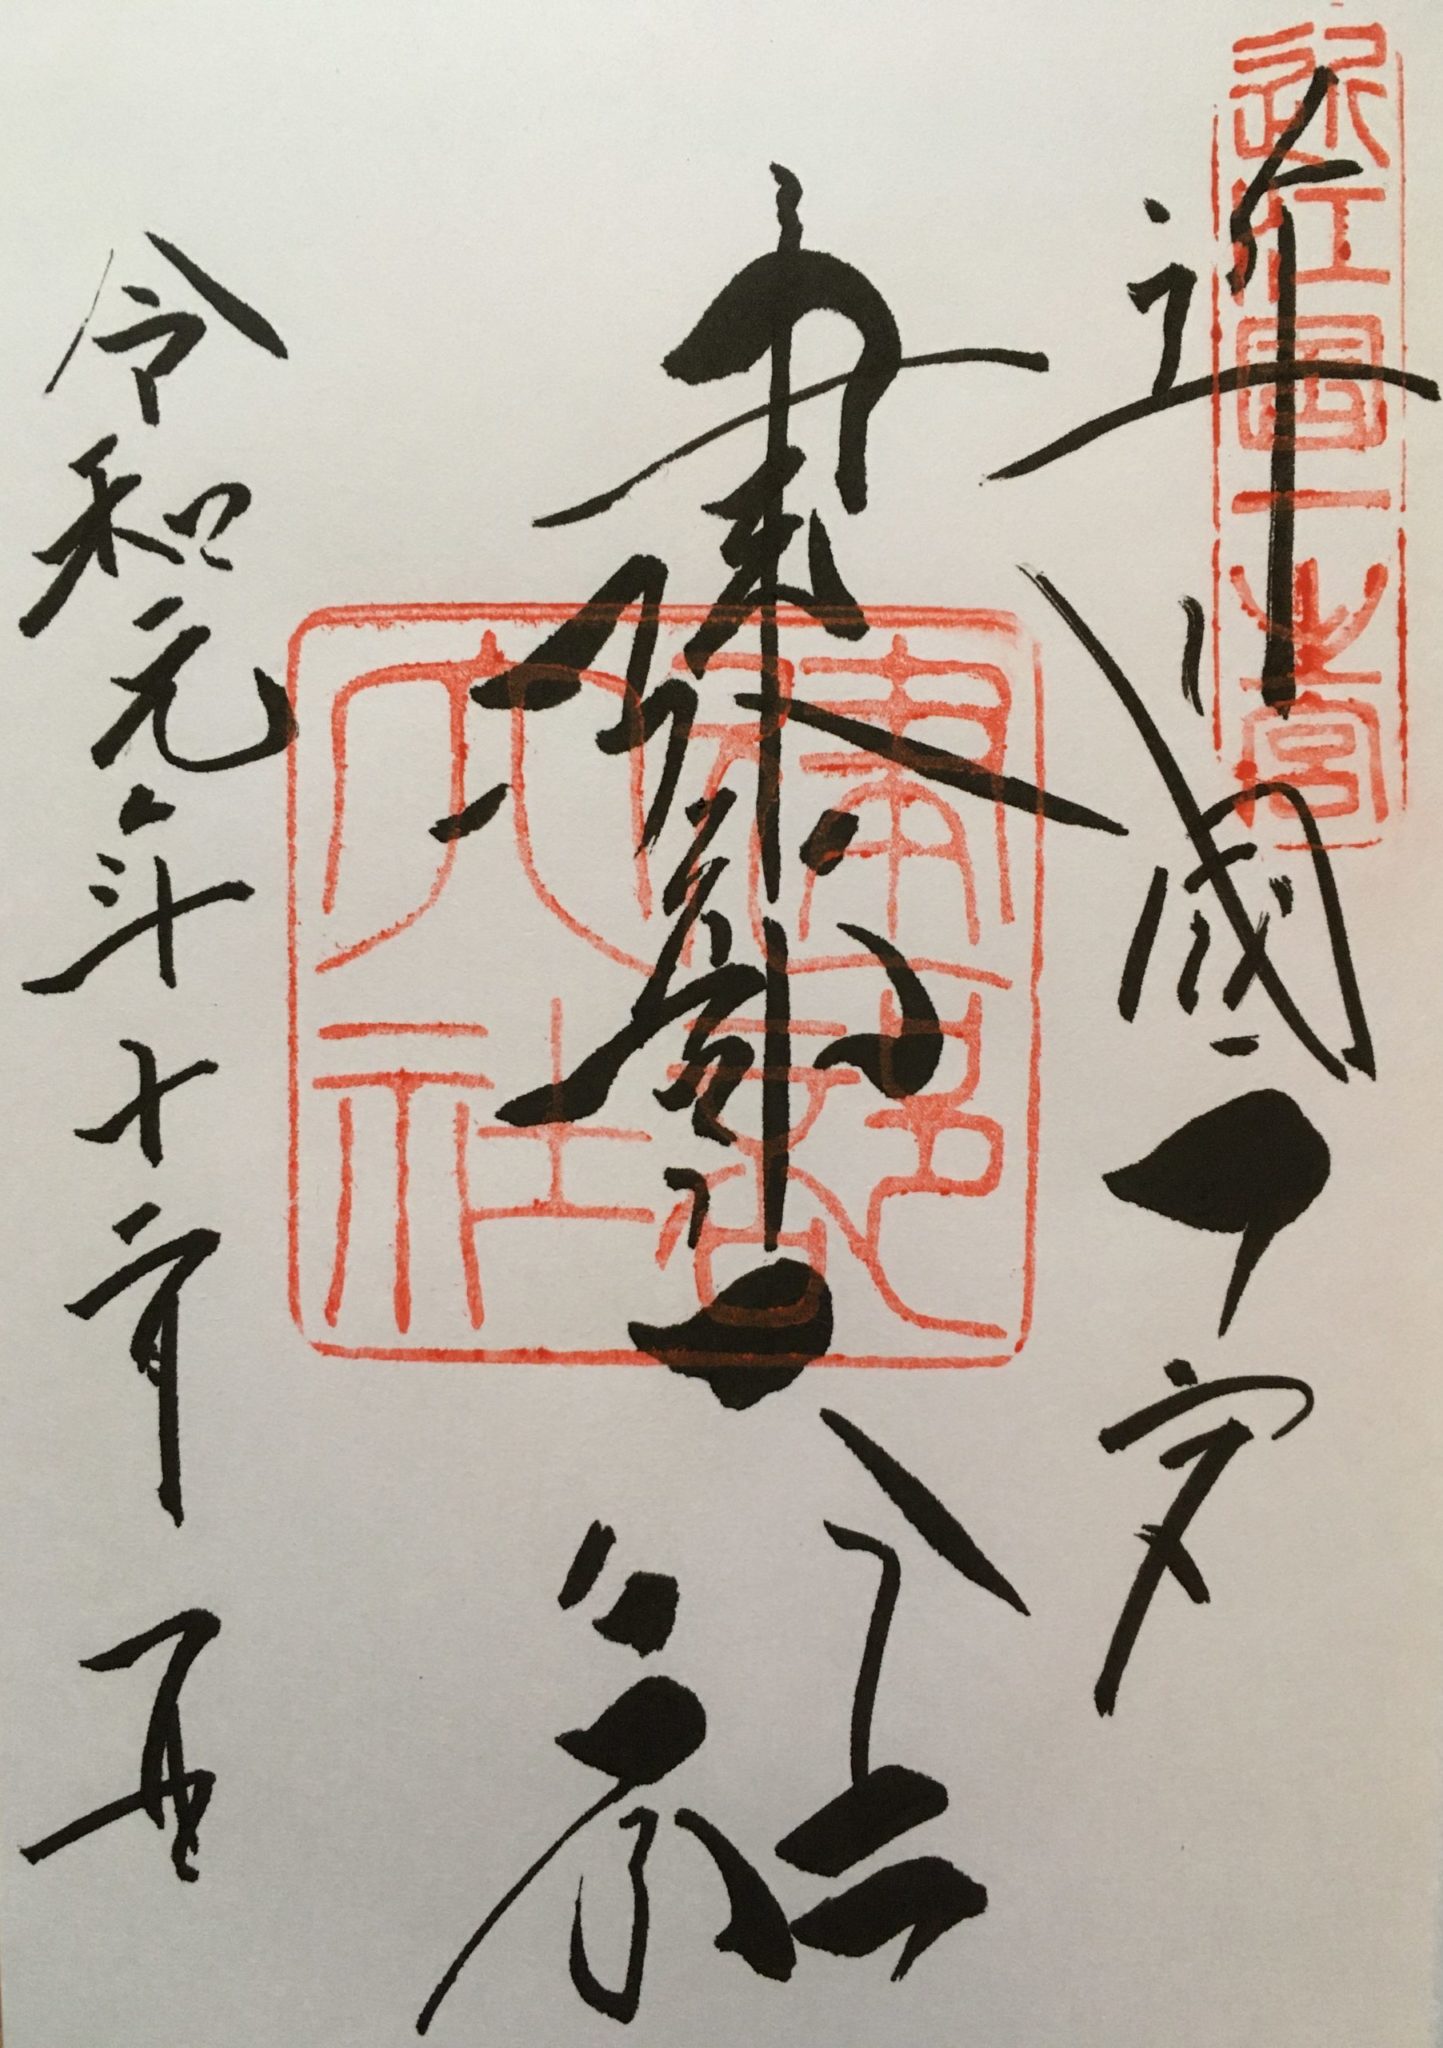 近江國一之宮
近江國一之宮
建部大社
建部大社
令和元年十一月五日